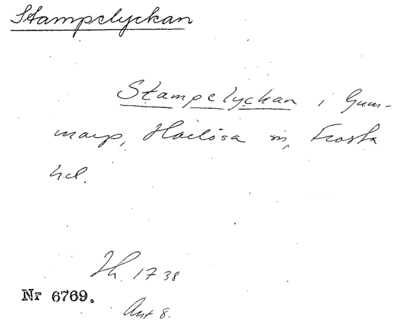 Stampelyckan
Stampelyckan i Gum-
marp, Harlösa sn, Frosta
hd.
Jh. 1738
Nr 6769.
Ant 8.